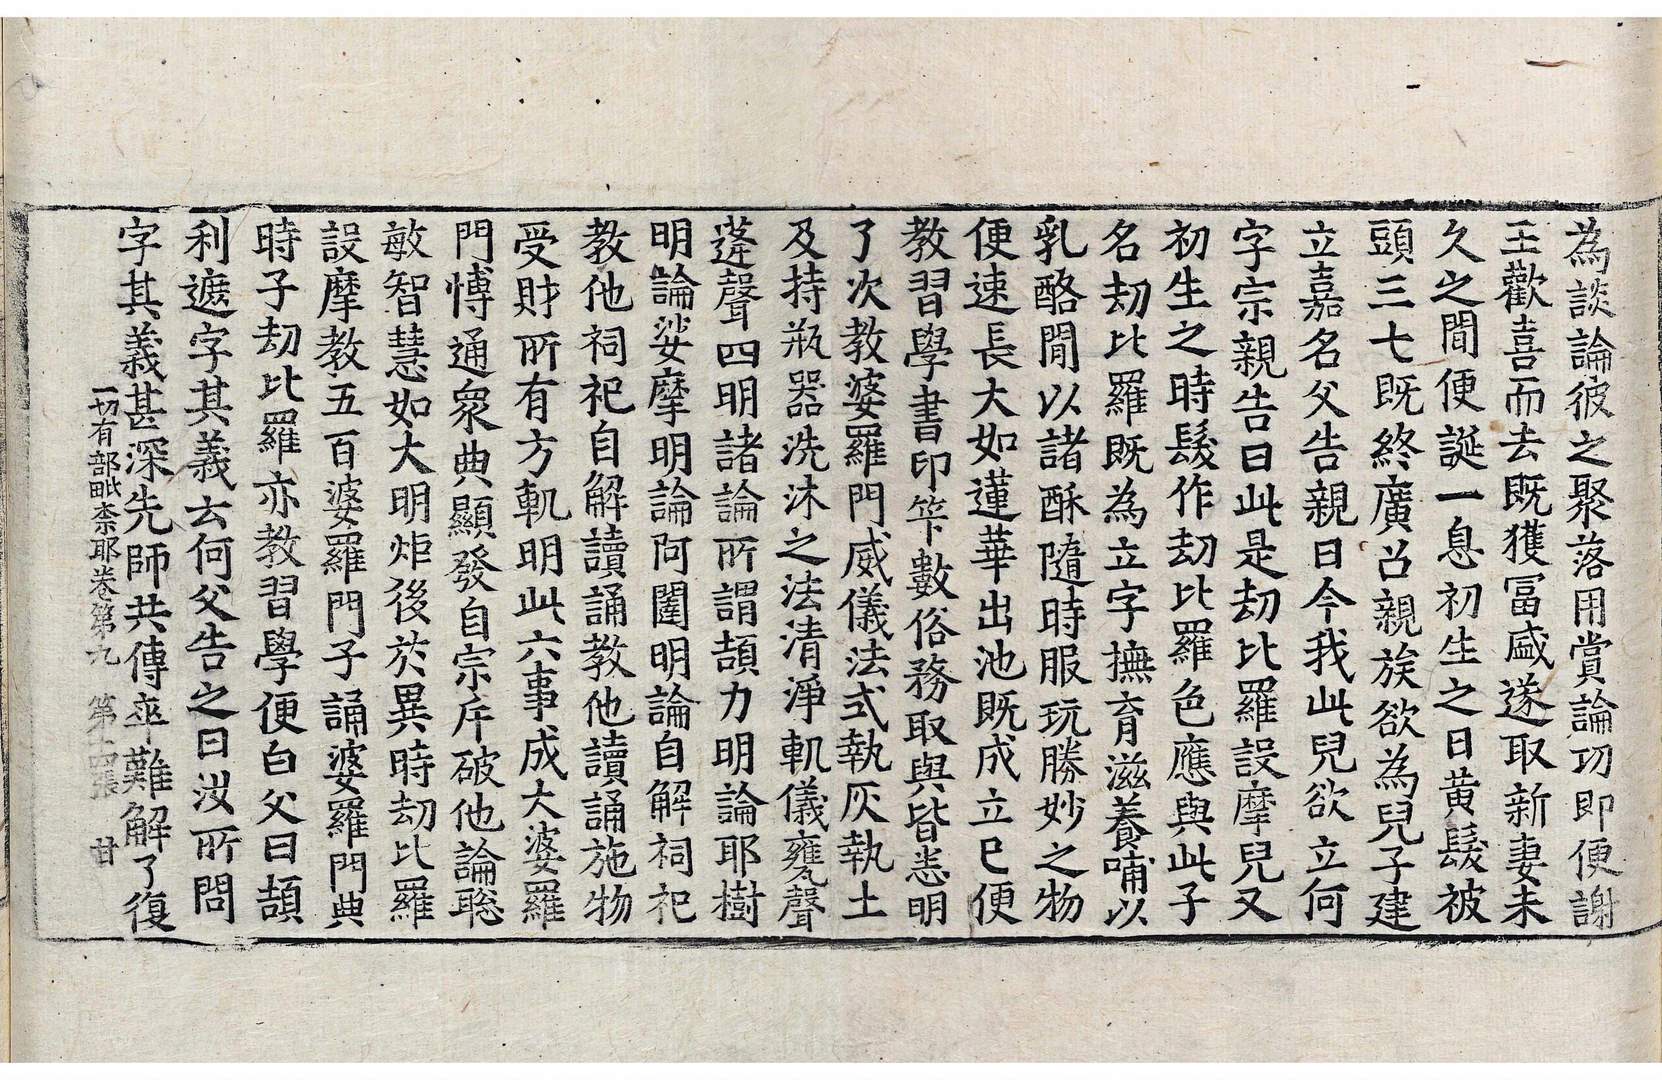 為談論彼之聚落用賞論功即便謝
王歡喜而去既獲冨盛遂取新妻未
久之間便誕一息初生之日黄髮被
頭三七既終廣召親族欲為兒子建
立嘉名父告親曰今我此兒欲立何
字宗親告曰此是劫比羅設摩兒又
初生之時髮作劫比羅色應與此子
名劫比羅既為立字撫育滋養哺以
乳酪閒以諸酥隨時服玩勝妙之物
便速長大如蓮華出池既成立已便
教習學書印筭數俗務取與皆悉明
了次教婆羅門威儀法式執灰執土
及持瓶器洗沐之法清淨軌儀甕聲
蓬聲四明諸論所謂頡力明論耶樹
明論娑摩明論阿闥明論自解祠祀
教他祠祀自解讀誦教他讀誦施物
受財所有方軌明此六事成大婆羅
門愽通衆典顯發自宗斥破他論聡
敏智慧如大明炬後於異時劫比羅
設摩教五百婆羅門子誦婆羅門典
時子劫比羅亦教習學便白父曰頡
利遮字其義云何父告之曰汝所問
字其義甚深先師共傳卒難解了復
一切有部毗柰耶卷第九 第十四張 甘